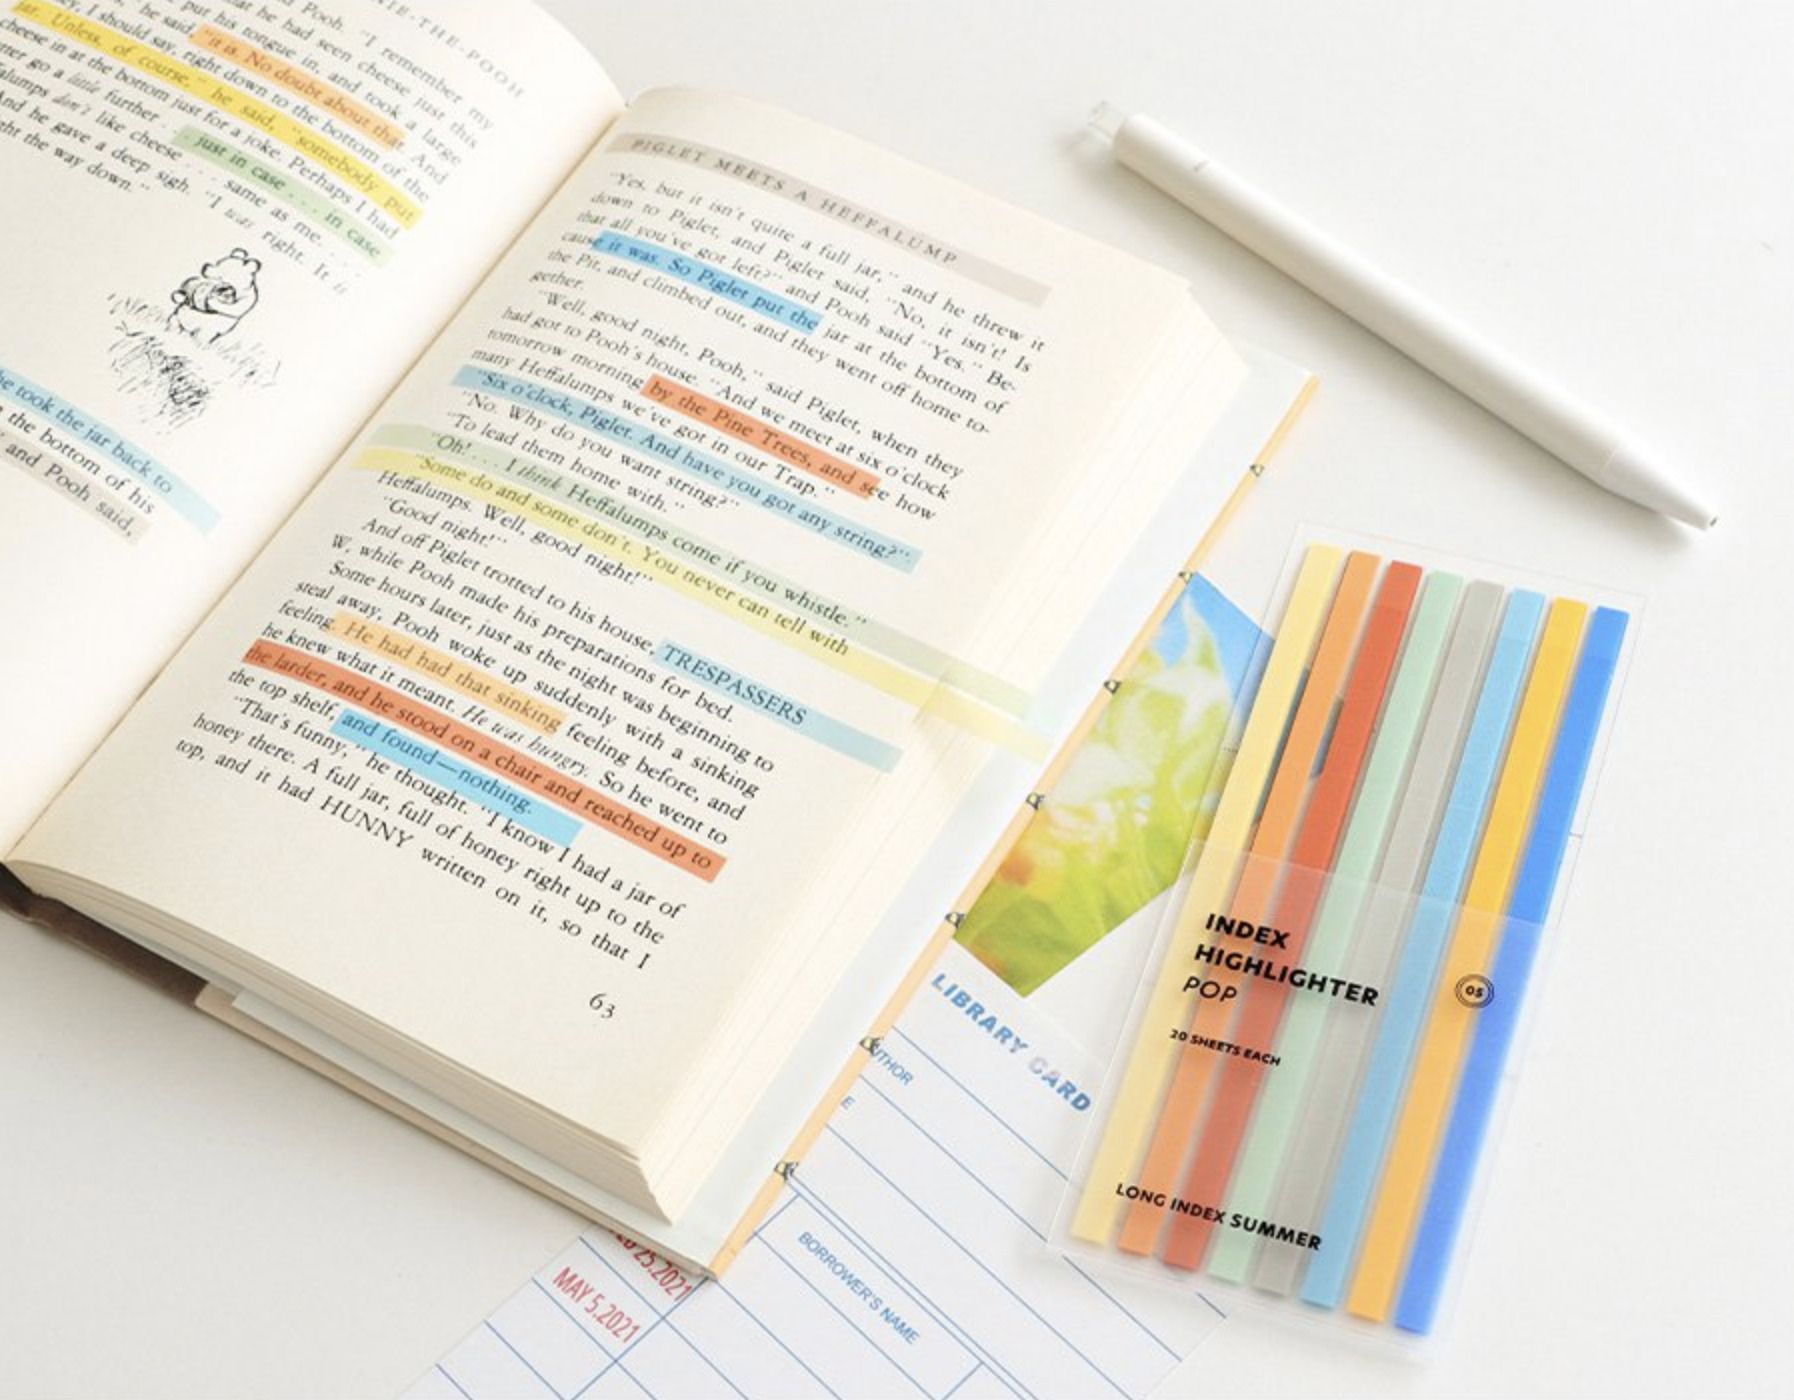 NIE-THE-POOH
Pooh. "I remember my
that he had seen cheese just this
put his tongue in, and took a large
he said, "it is. No doubt about that. And
I should say, right down to the bottom of the
jar. Unless, of course," he said, "somebody put
cheese in at the bottom just for a joke. Perhaps I had
go a little further . . . just in case . . . in case
don't like cheese . . . same as me. . . .
And he gave a deep sigh. "I was right. It is
the way down."
took the jar back to
the bottom of his
and Pooh said,
PIGLET MEETS A HEFFALUMP
"Yes, but it isn't quite a full jar," and he threw it
down to Piglet, and Piglet said, "No, it isn't! Is
that all you've got left?" and Pooh said "Yes." Be-
cause it was. So Piglet put the jar at the bottom of
the Pit, and climbed out, and they went off home to-
gether.
"Well, good night, Pooh," said Piglet, when they
had got to Pooh's house. "And we meet at six o'clock
tomorrow morning by the Pine Trees, and see how
many Heffalumps we've got in our Trap."
"Six o'clock, Piglet. And have you got any string?"
"No. Why do you want string?"
"To lead them home with."
"Oh! . . . I think Heffalumps come if you whistle."
"Some do and some don't. You never can tell with
Heffalumps. Well, good night!"
"Good night!"
And off Piglet trotted to his house, TRESPASSERS
W, while Pooh made his preparations for bed.
Some hours later, just as the night was beginning to
steal away, Pooh woke up suddenly with a sinking
feeling. He had had that sinking feeling before, and
he knew what it meant. He was hungry. So he went to
the larder, and he stood on a chair and reached up to
the top shelf, and found—nothing.
"That's funny," he thought. "I know I had a jar of
honey there. A full jar, full of honey right up to the
top, and it had HUNNY written on it, so that I
63
LIBRARY CARD
UTHOR
E
25.2021
MAY 5.2021
BORROWER'S NAME
INDEX
HIGHLIGHTER
POP
05
20 SHEETS EACH
LONG INDEX SUMMER